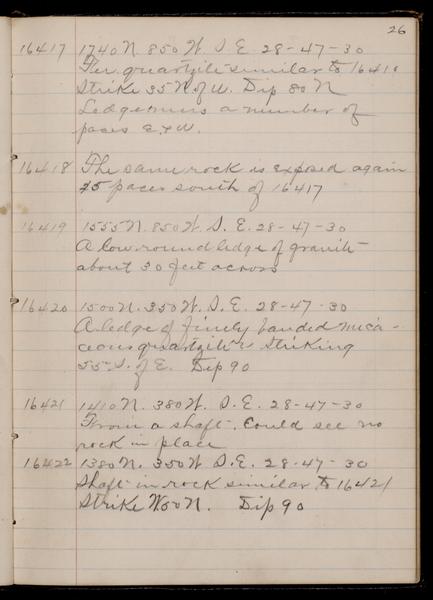 26
16417 1740 N. 850 W. S. E. 28-47-30
Fer. quartzite similar to 16416
Strike 35 N of W. Dip 80 N
Ledge runs a number of
paces E. & W.
16418 The same rock is exposed again
25 paces south of 16417
16419 1555 N. 850 W. S. E. 28-47-30
A low round ledge of granite
about 30 feet across
16420 1500 N. 350 W. S. E. 28-47-30
A ledge of finely banded mica-
ceous quartzite striking
55 S. of E. Dip 90
16421 1410 N. 380 W. S. E. 28-47-30
From a shaft. Could see no
rock in place
16422 1380 N. 350 W. S. E. 28-47-30
Shaft in rock similar to 16421
Strike W 50 N. Dip 90